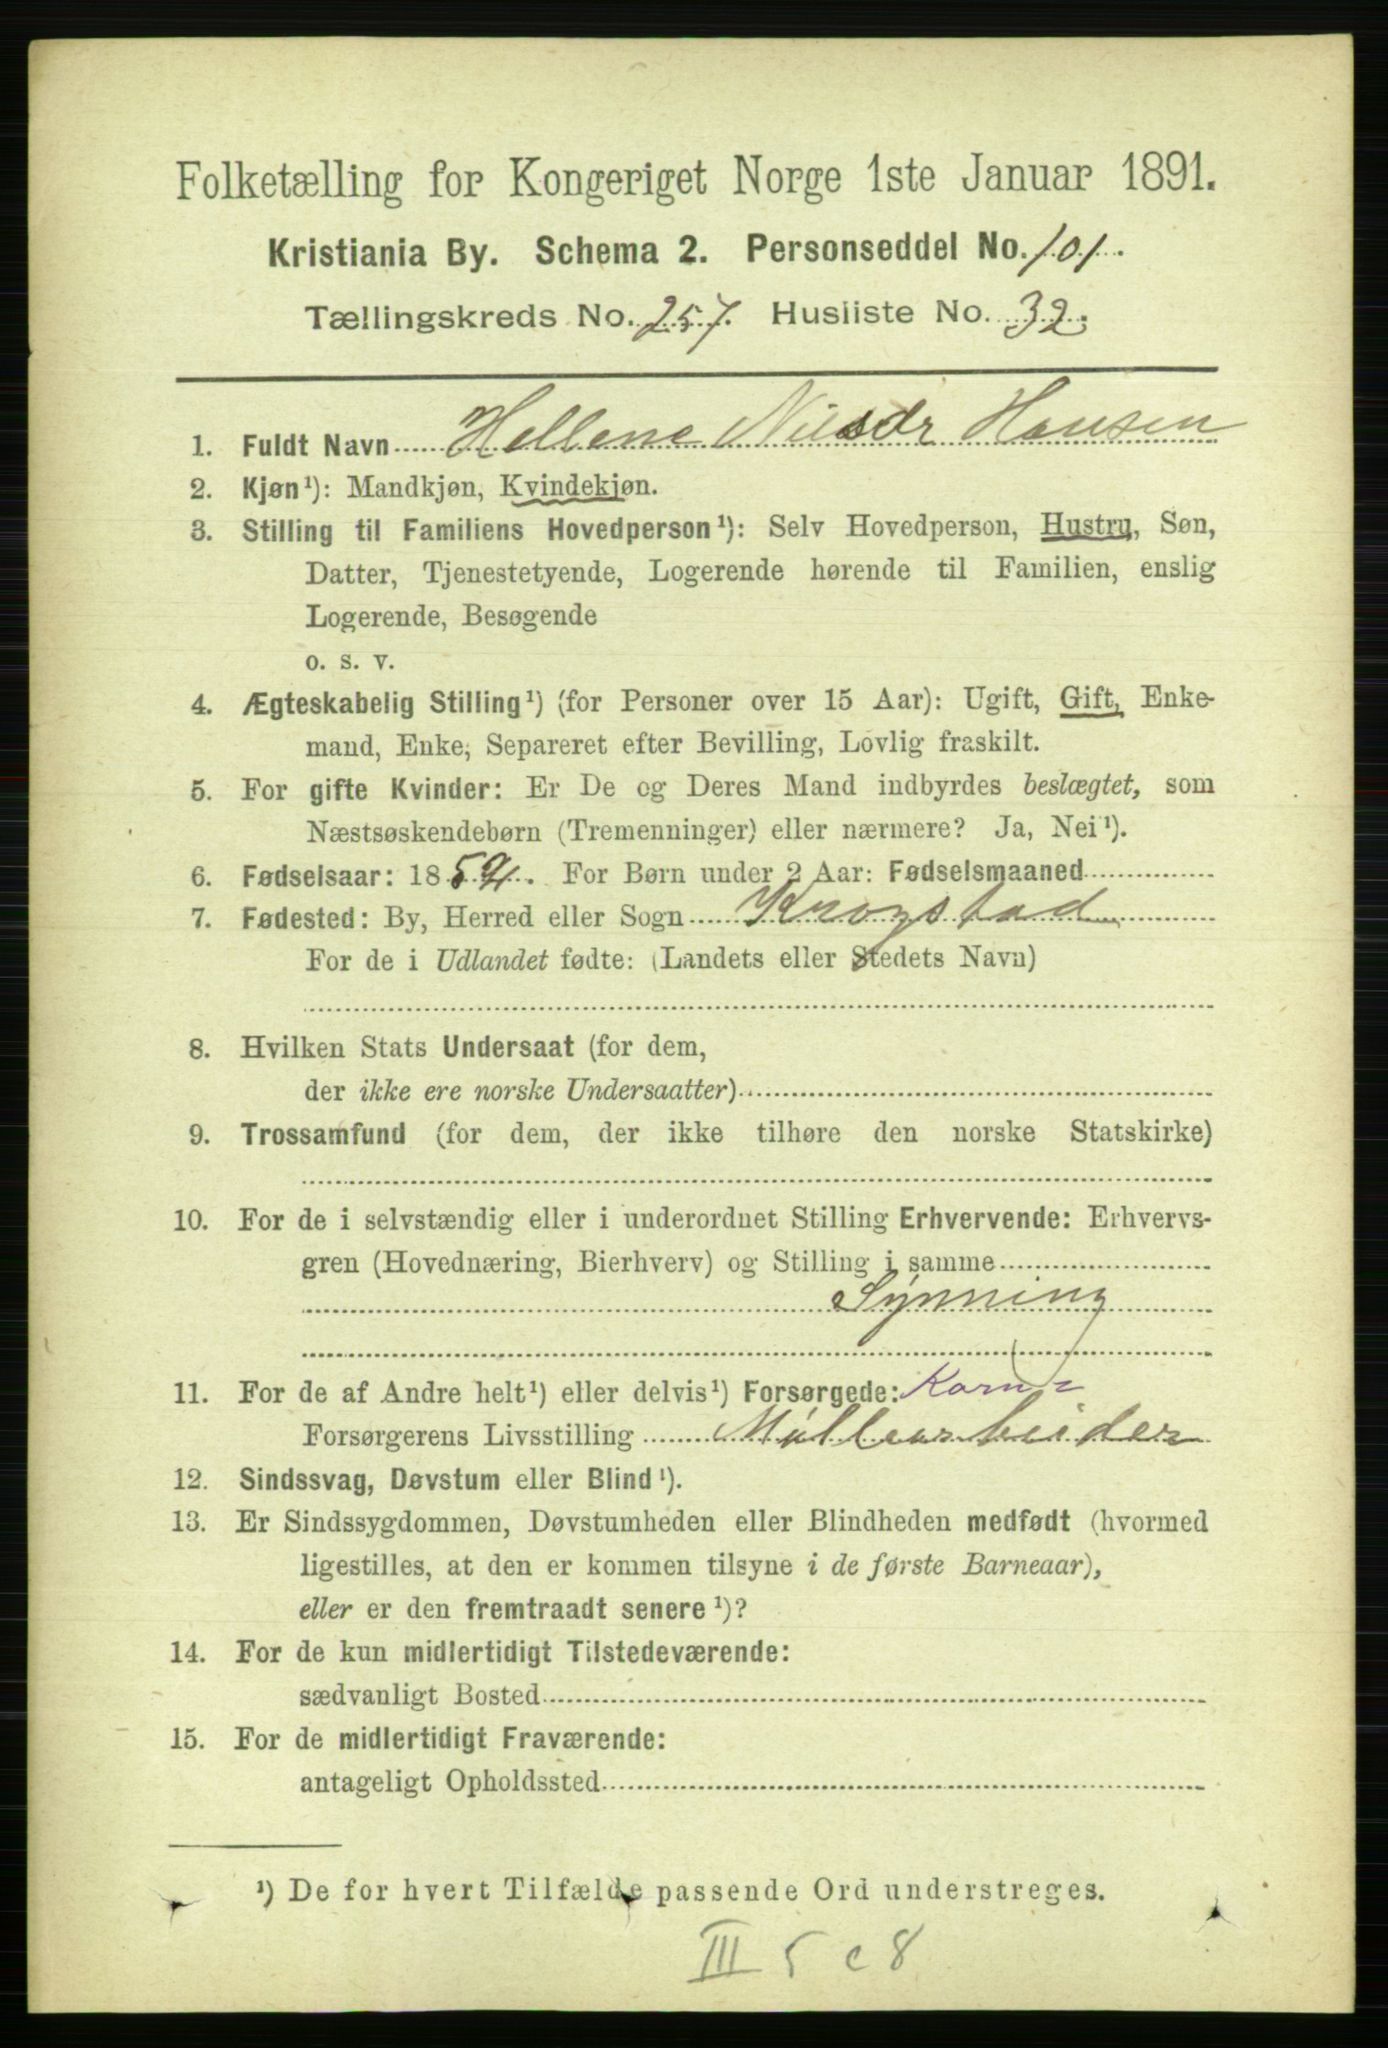 Folketælling for Kongeriget Norge 1ste Januar 1891.
Kristiania By. Schema 2. Personseddel No. 101.
Tællingskreds No. 257. Husliste No. 32.
1. Fuldt Navn Hellene Nilsdr Hansen
2. Kjøn ¹): Mandkjøn, Kvindekjøn.
3. Stilling til Familiens Hovedperson ¹): Selv Hovedperson, Hustru, Søn,
Datter, Tjenestetyende, Logerende hørende til Familien, enslig
Logerende, Besøgende
o. s. v.
4. Ægteskabelig Stilling ¹) (for Personer over 15 Aar): Ugift, Gift, Enke-
mand, Enke, Separeret efter Bevilling, Lovlig fraskilt.
5. For gifte Kvinder: Er De og Deres Mand indbyrdes beslægtet, som
Næstsøskendebørn (Tremenninger) eller nærmere? Ja, Nei ¹).
6. Fødselsaar: 1859. For Børn under 2 Aar: Fødselsmaaned
7. Fødested: By, Herred eller Sogn Krogstad
For de i Udlandet fødte: (Landets eller Stedets Navn)
8. Hvilken Stats Undersaat (for dem,
der ikke ere norske Undersaatter)
9. Trossamfund (for dem, der ikke tilhøre den norske Statskirke)
10. For de i selvstændig eller i underordnet Stilling Erhvervende: Erhvervs-
gren (Hovednæring, Bierhverv) og Stilling i samme
Synning
11. For de af Andre helt ¹) eller delvis ¹) Forsørgede: Korn-
Forsørgerens Livsstilling Møllearbeider
12. Sindssvag, Døvstum eller Blind ¹).
13. Er Sindssygdommen, Døvstumheden eller Blindheden medfødt (hvormed
ligestilles, at den er kommen tilsyne i de første Barneaar),
eller er den fremtraadt senere ¹)?
14. For de kun midlertidigt Tilstedeværende:
sædvanligt Bosted
15. For de midlertidigt Fraværende:
antageligt Opholdssted
¹) De for hvert Tilfælde passende Ord understreges.
III 5 c 8